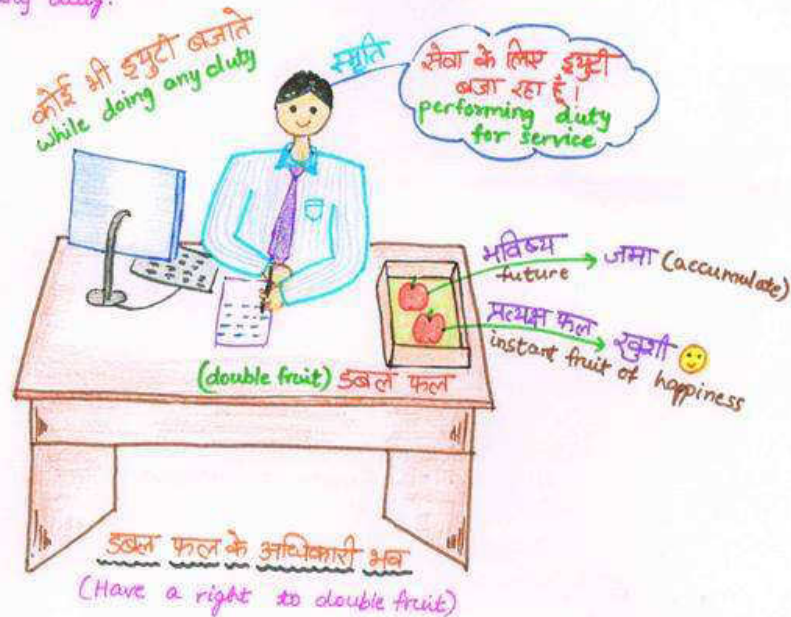 duty.
कोई भी ड्युटी बजाते
while doing any duty
स्मृति
सेवा के लिए ड्युटी
बजा रहा हूँ।
performing duty
for service
भविष्य
future
जमा (accumulate)
प्रत्यक्ष फल
instant fruit of happiness
खुशी
(double fruit) डबल फल
डबल फल के अधिकारी भव
(Have a right to double fruit)